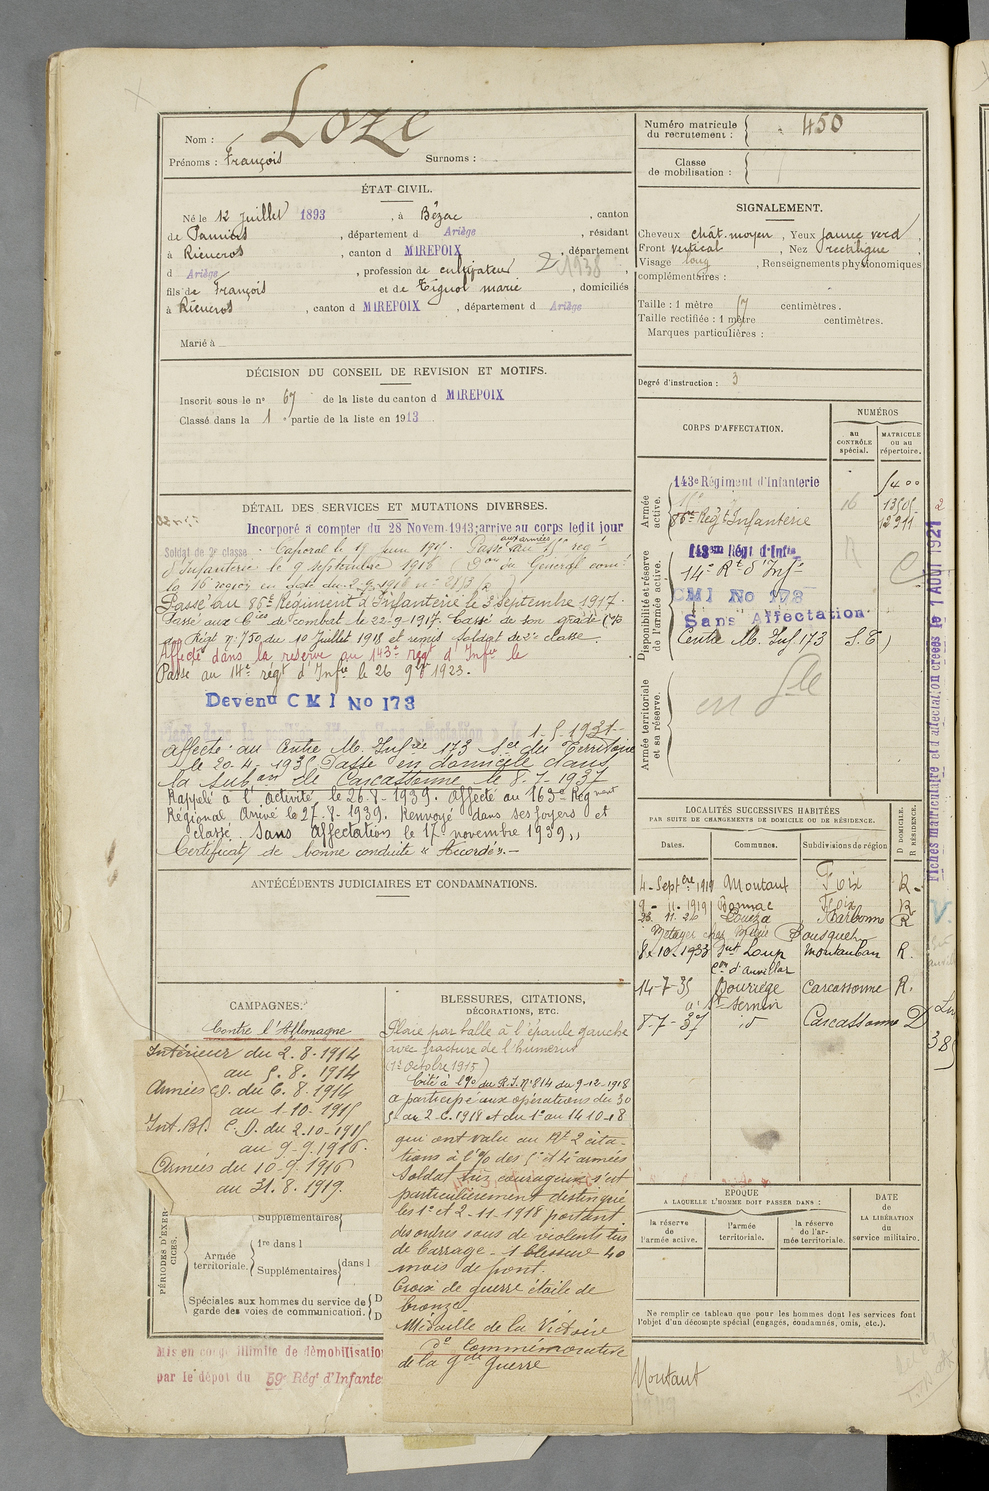 Nom : Loze
Prénoms : François Surnoms :
Numéro matricule du recrutement : 450
Classe de mobilisation :
ÉTAT CIVIL.
Né le 12 juillet 1893, à Bézac, canton
de Pamiers, département d Ariège, résidant
à Rieucros, canton d MIREPOIX, département
d Ariège, profession de cultivateur 1938
fils de François et de Tignol marie, domiciliés
à Rieucros, canton d MIREPOIX, département d Ariège
Marié à
SIGNALEMENT.
Cheveux chât. moyen, Yeux jaune verd,
Front vertical, Nez rectiligne,
Visage long, Renseignements physionomiques
complémentaires :
Taille : 1 mètre 67 centimètres.
Taille rectifiée : 1 mètre centimètres.
Marques particulières :
Degré d'instruction : 3
DÉCISION DU CONSEIL DE REVISION ET MOTIFS.
Inscrit sous le n° 67 de la liste du canton d MIREPOIX
Classé dans la 1 partie de la liste en 1913
DÉTAIL DES SERVICES ET MUTATIONS DIVERSES.
Incorporé à compter du 28 Novem. 1913; arrivé au corps ledit jour
Soldat de 2e classe. Caporal le 17 juin 1915. Passé aux armées au 15e regt
d'Infanterie le 9 septembre 1916 (Don du Général comt
la 16e region en date du 2.9.1916
Passé au 86e Régiment d'Infanterie le 3 Septembre 1917.
Passé aux Cies de combat le 22-9-1917. Cassé de son grade
Régt n: 750 du 10 Juillet 1918 et remis soldat de 2e classe.
Affecté dans la reserve au 143e régt d'Infie le
Passé au 14e régt d'Infie le 26 9bre 1923.
Devenu CMI No 173
1-5-1931
Affecté au Centre M. Infrie 173 Sce du Territoire
le 20-4-1935 Passé en domicile dans
la subon de Carcassonne le 8-7-1937
Rappelé à l'activité le 26-8-1939. Affecté au 163e Régiment
Régional. Arrivé le 27-8-1939. Renvoyé dans ses foyers et
classé "Sans Affectation" le 17 novembre 1939.
Certificat de bonne conduite "Accordé".-
CORPS D'AFFECTATION.
NUMÉROS
au CONTRÔLE spécial.
MATRICULE ou au répertoire.
Armée active.
143e Régiment d'Infanterie 5400
15e 16 13505
86e Régt Infanterie 12911
Disponibilité et réserve de l'armée active.
143me Régt d'Infie
14e Rt d'Infie
CMI No 173
Sans Affectation
Centre M. Inf. 173 S.T.
Armée territoriale et sa réserve.
Fiches matriculaire et d'affectation créées le 1 AOUT 1921
LOCALITÉS SUCCESSIVES HABITÉES
PAR SUITE DE CHANGEMENTS DE DOMICILE OU DE RÉSIDENCE.
Dates. Communes. Subdivisions de région D DOMICILE. R RÉSIDENCE.
4-Septbre 1919 Montaut Foix R.
9-11-1919 Bonnac Foix R
23.11.26 Narbonne R
Métayer chez Bousquet
8-10-1933 St Loup Montauban R.
Con d'Auvillar
14-7-35 Bouriège Carcassonne R.
à St Sernin
8-7-37 id Carcassonne D
ANTÉCÉDENTS JUDICIAIRES ET CONDAMNATIONS.
CAMPAGNES.
Contre l'Allemagne
Intérieur du 2.8.1914
au 5.8.1914
Armées C.D. du 6.8.1914
au 1.10.1915
Int. Bl. C.D. du 2.10.1915
au 9-9-1916.
Armées du 10.9.1916
au 31.8.1919.
PÉRIODES D'EXERCICES.
Supplémentaires
Armée territoriale.
1re dans l
Supplémentaires dans l
Spéciales aux hommes du service de garde des voies de communication. D D
BLESSURES, CITATIONS, DÉCORATIONS, ETC.
Plaie par balle à l'épaule gauche
avec fracture de l'humerus
(1er Octobre 1915)
Cité à l'% du R.I. N°814 du 9-12-1918
a participé aux opérations du 30
5 au 2-6.1918 et du 1er au 14 10-18
qui ont valu au Rt 2 cita-
tions à l'% des 5e et 4e armées
Soldat très courageux, s'est
particulièrement distingué
les 1er et 2-11-1918 portant
des ordres sous de violents tirs
de barrage - 1 blessure 40
mois de front.
Croix de guerre étoile de
bronze.
Médaille de la Victoire
do Commémorative
de la gde guerre
ÉPOQUE
A LAQUELLE L'HOMME DOIT PASSER DANS :
la réserve de l'armée active.
l'armée territoriale.
la réserve de l'armée territoriale.
DATE DE LA LIBÉRATION du service militaire.
Ne remplir ce tableau que pour les hommes dont les services font
l'objet d'un décompte spécial (engagés, condamnés, omis, etc.).
Mis en congé illimité de démobilisation
par le dépôt du 59e Régt d'Infante
Montaut